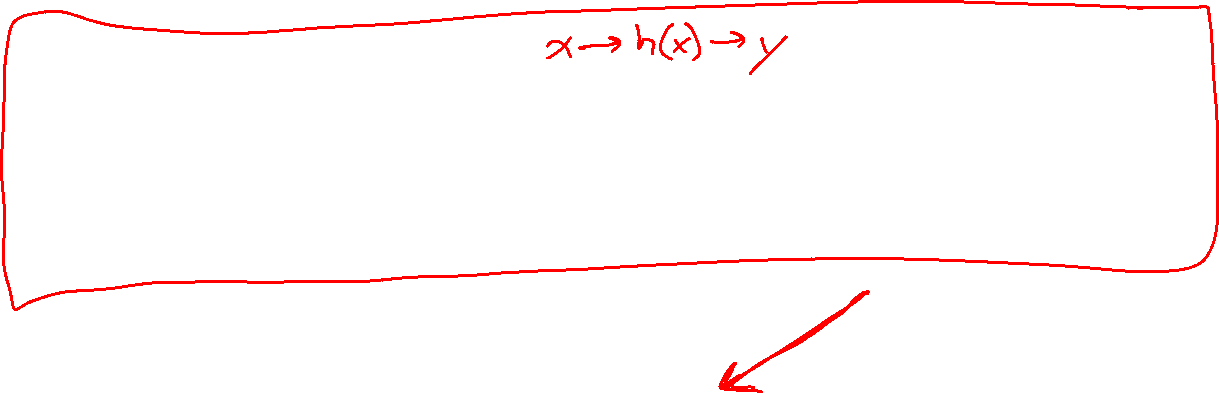 x → h(x) → y